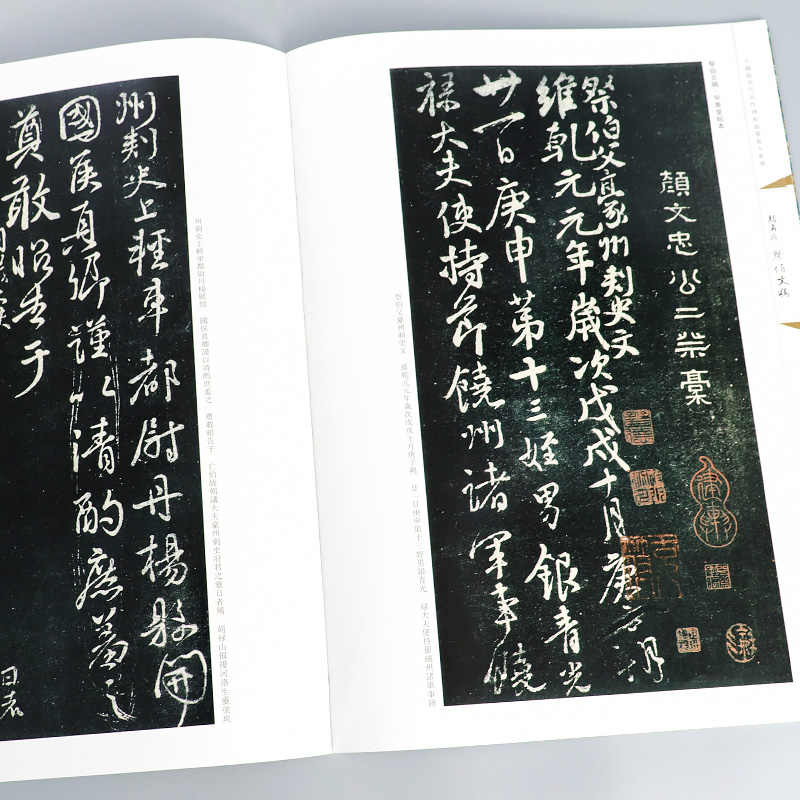 祭伯文稿 甲秀堂帖本
祭伯文稿
顏文忠公二祭稾
祭伯父豪州刺史文
維乾元元年歲次戊戌十月庚子朔
廿一日庚申第十三姪男銀青光
祿大夫使持節饒州諸軍事饒
祭伯父豪州刺史文 維乾元元年歲次戊戌十月庚子朔 廿一日庚申第十三姪男銀青光 祿大夫使持節饒州諸軍事饒
州刺史上輕車都尉丹楊縣開 國侯真卿謹以清酌庶羞之 奠敢昭告于 亡伯故朝議大夫豪州刺史府君之靈日者羯 胡祿山俶擾河洛生靈塗炭
州刺史上輕車都尉丹楊縣開
國侯真卿謹以清酌庶羞之
奠敢昭告于
日者